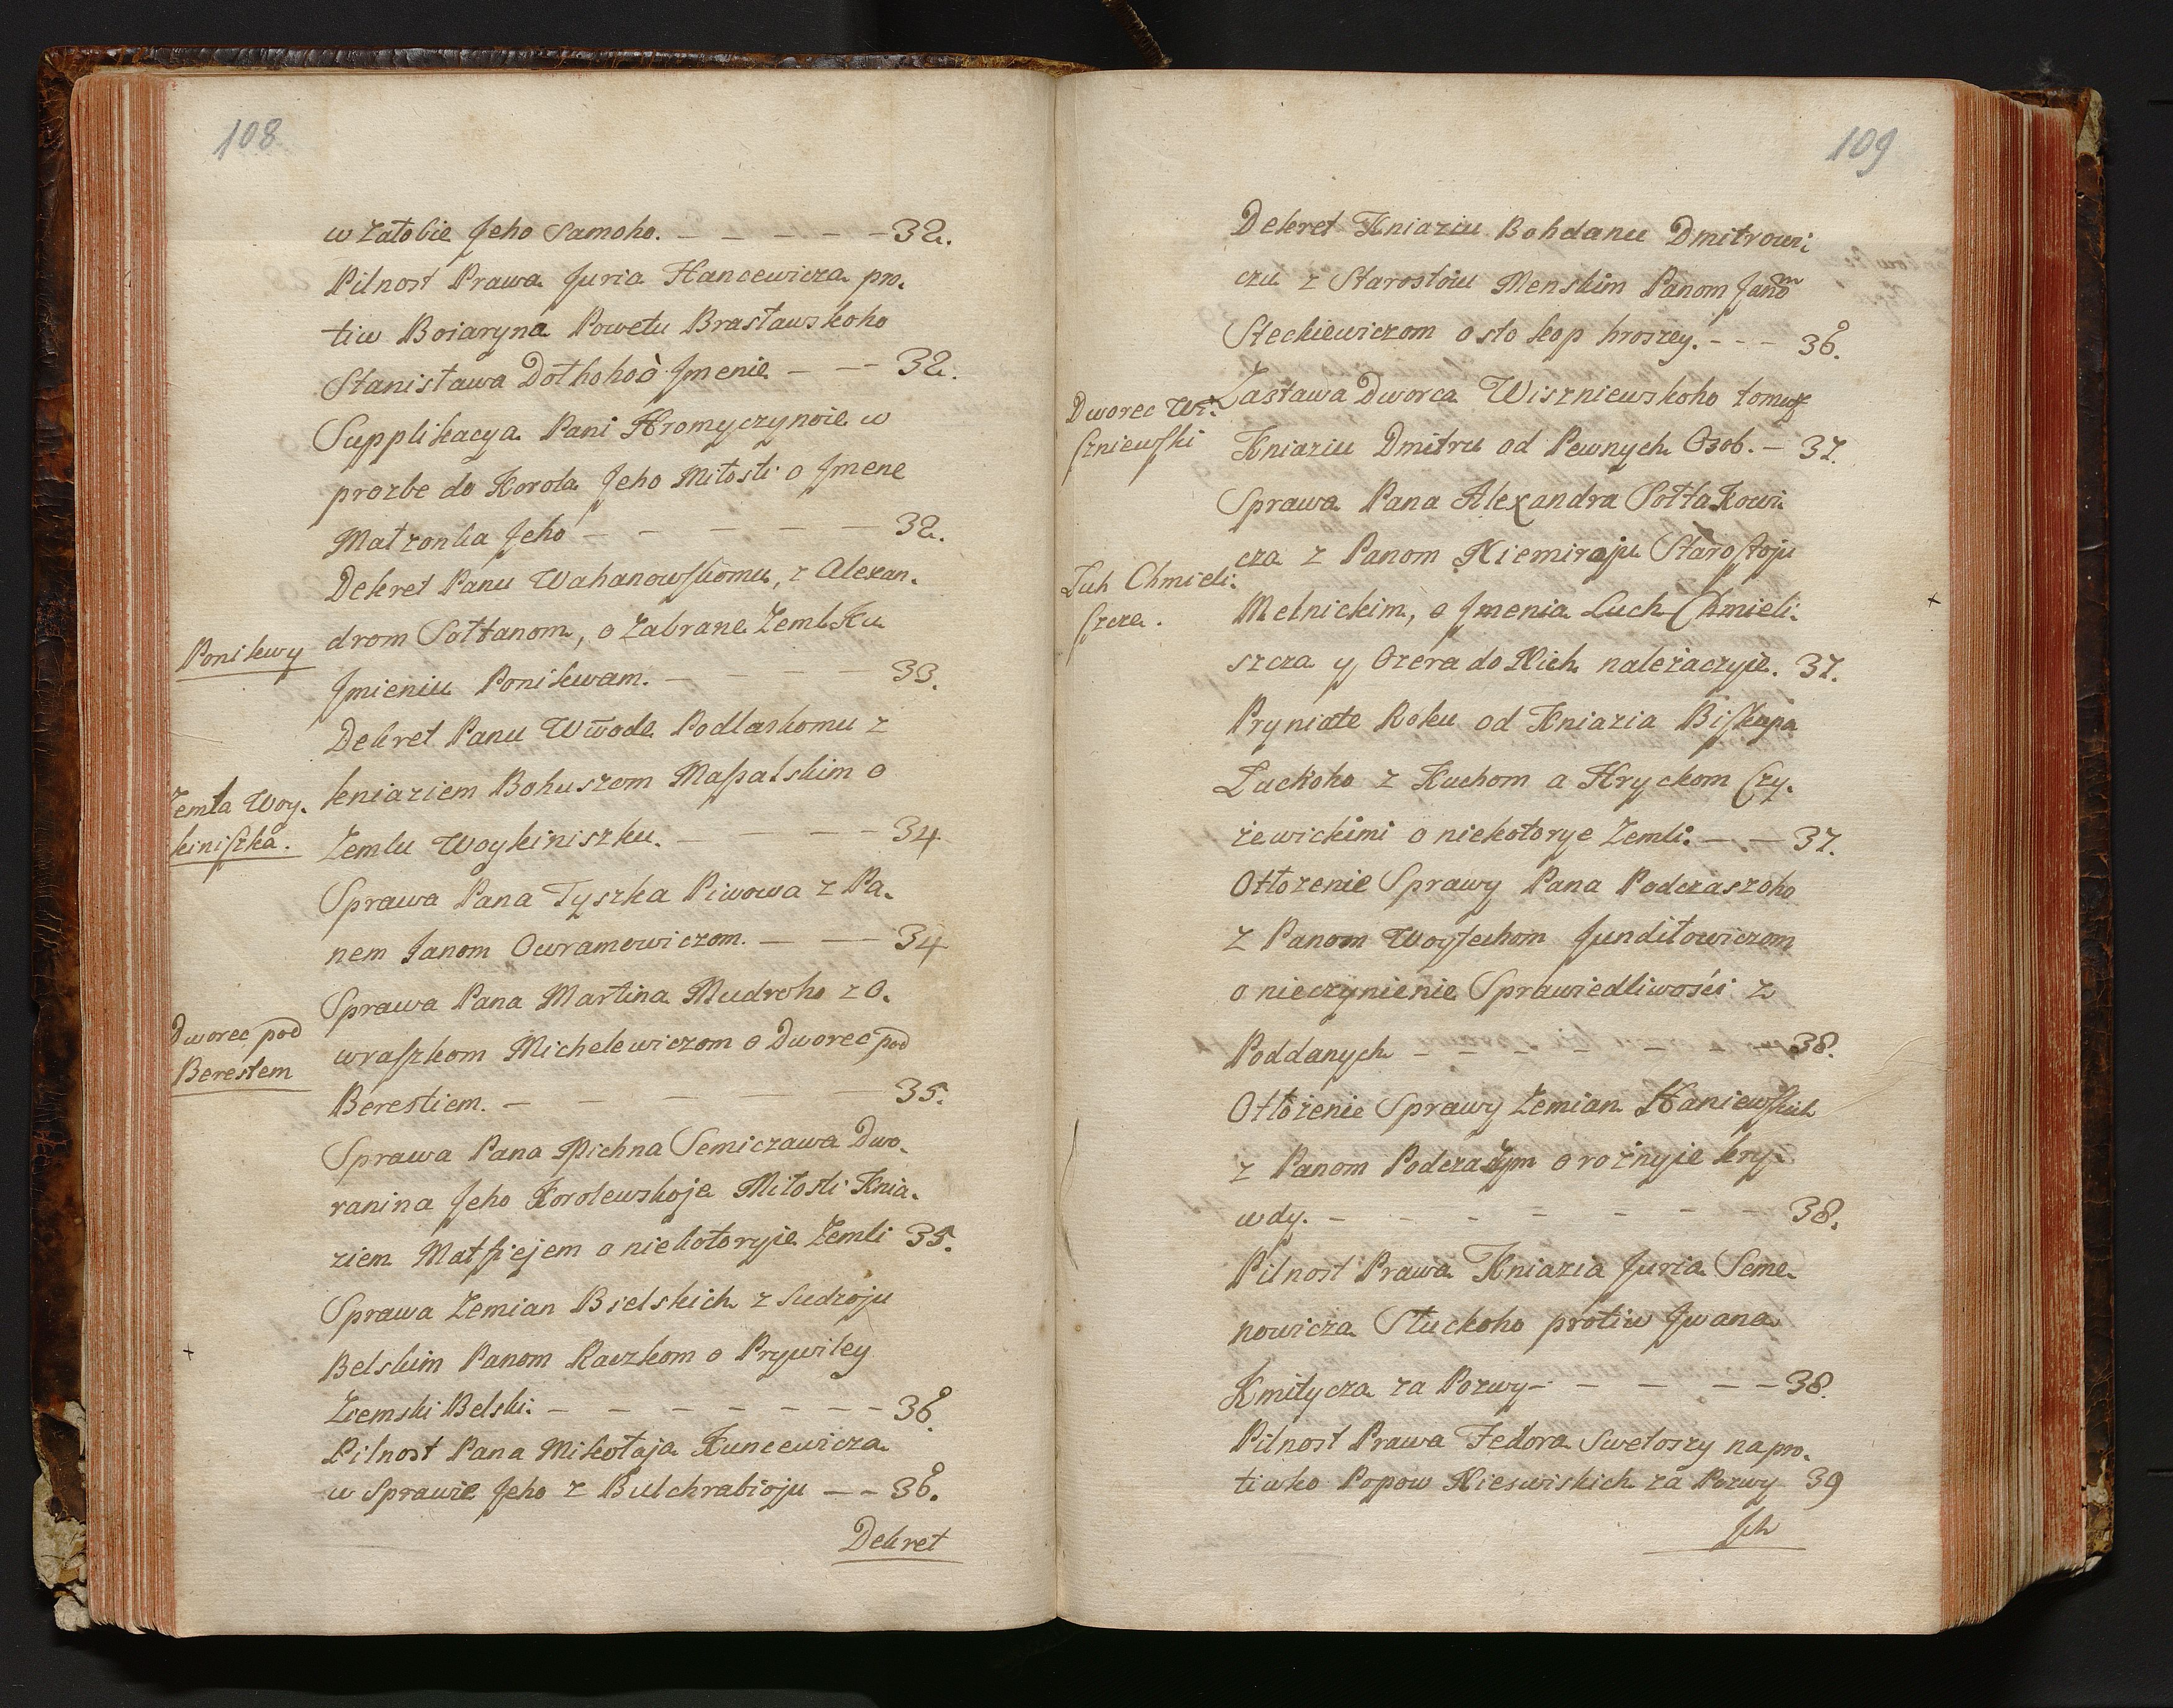 108
w Załobie Jeho Samoho. – – – – – 32.
Pilnost Prawa Juria Hancewicza pro.
tiw Boiaryna Powetu Brasławskoho
Stanisława Dołhoho ò Jmenie – – – 32.
Supplikacya Pani Hromyczynoie w
prozbe do Korola Jeho Miłosti o Jmene
Małzonka Jeho – – – – – 32.
Dekret Panu Wahanowskomu, z Alexan.
Ponikwy
drom Sołtanom, o Zabrane Zeml. Ku
Jmieniu Ponikwam. – – – – 33.
Dekret Panu Wwode Podlaskomu z
Zemla Woy.
kiniszka.
kniaziem Bohuszom Massalskim o
Zemlu Woykiniszku. – – – – 34.
Sprawa Pana Tyszka Piwowa z Pa.
nem Janom Owramowiczom. – – 34
Sprawa Pana Martina Mudroho z O.
Dworec pod
Berestem
wraszkom Michelewiczom o Dworec pod
Berestiem. – – – – – 35.
Sprawa Pana Michna Semiczawa Dwo.
ranina Jeho Korolewskoje Miłosti Knia.
ziem Matfiejem o niekotoryie Zemli 35.
Sprawa Zemian Bielskich z Sudzoju
Belskim Panom Raczkom o Prywiley
Ziemski Belski. – – – – – – – 36.
Pilnost Pana Mikołaja Kuncewicza
w Sprawie Jeho z Bulchrabioju – – 36.
Dekret
109
Dekret Kniaziu Bohdanu Dmitrowi
czu z Starostoiu Menskim Panom Janom
Steckiewiczom o sto kop hroszey. – – – 36.
Dworec Wi.
szniewski
Zastawa Dworca Wiszniewskoho tomuż
Kniaziu Dmitru od Pewnych Osob. – 37.
Sprawa Pana Alexandra Sołtakowi
cza z Panom Niemiroju Starostoju
Luh Chmieli.
szcza.
Melnickim, o Jmenia Luch Chmieli.
szcza y Ozera do Nich należaczyie. 37.
Pryniate Roku od Kniazia Biskupa
Łuckoho z Kuchom a Hryckom Czy.
żewickimi o niekotorye Zemli. – – 37.
Otłozenie Sprawy Pana Podczaszoho
z Panom Woyjechom Jundiłowiczom
o nieczynienie Sprawiedliwości z
Poddanych – – – – – – – 38.
Otłożenie Sprawy Zemian Haniewskich
z Panom Podczaszym o rożnyie kry.
wdy. – – – – – – – 38.
Pilnost Prawa Kniazia Juria Seme.
nowicza Słuckoho protiw Jwana
Kmitycza za Pozwy – – – – – 38.
Pilnost Prawa Fedora Swetoszy na pro.
tiwko Popow Nieswiskich za Pozwy 39
Jch